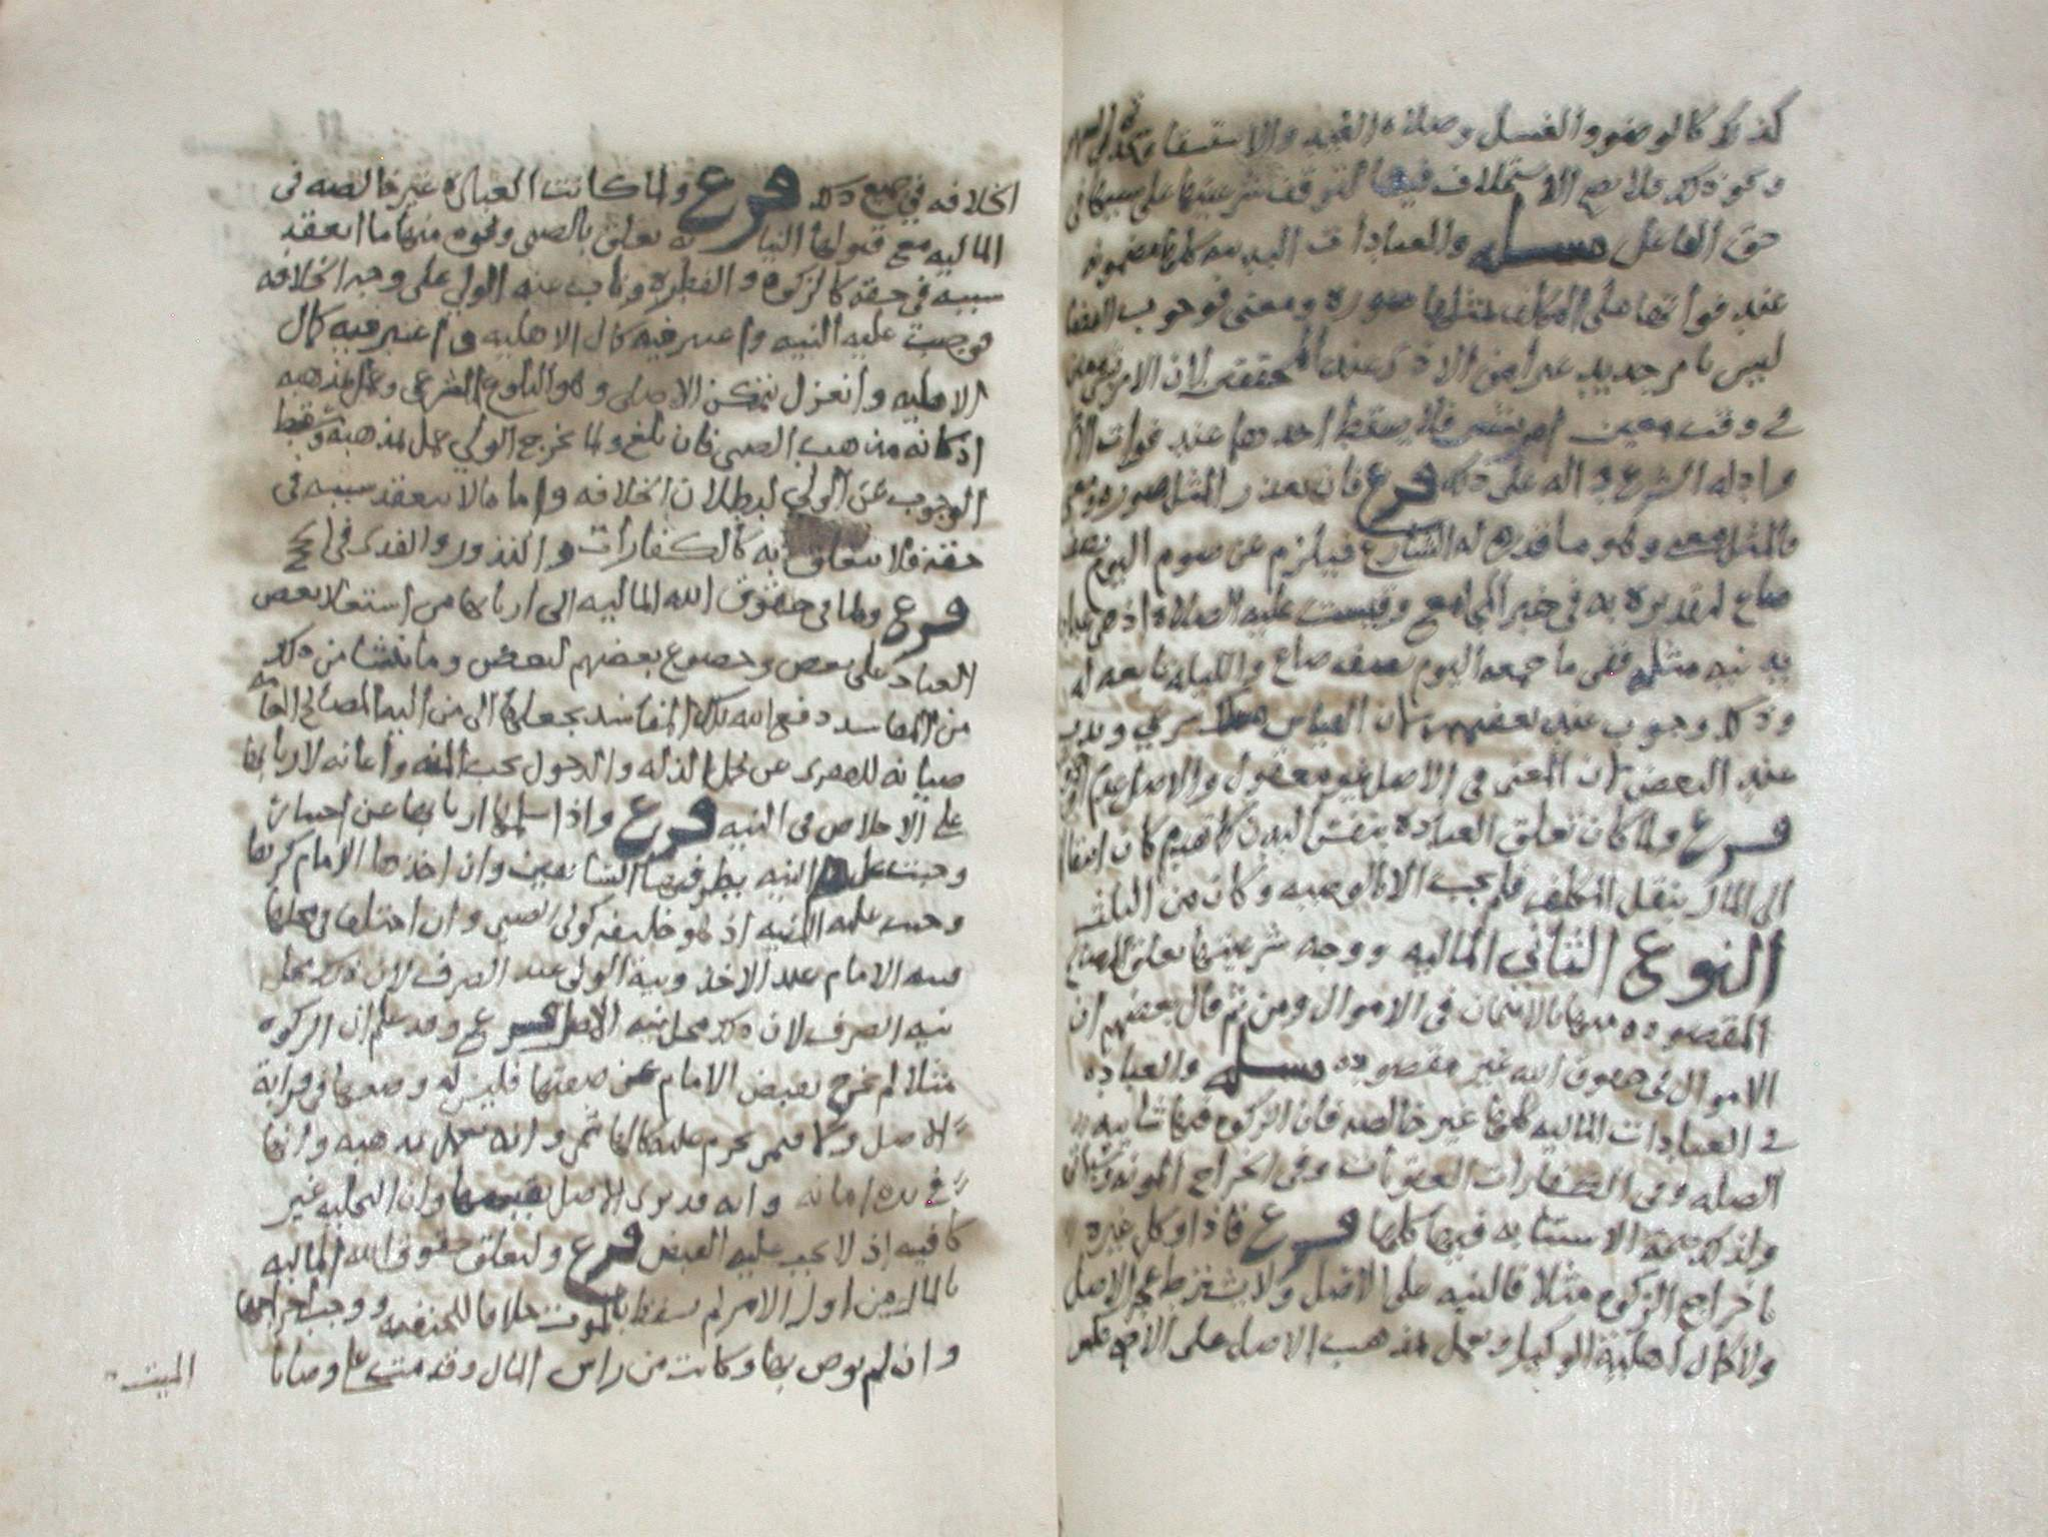 كذلك كالوضوء والغسل وصلاة العيد والاستسقاء
ونحو ذلك فلا يصح الاستخلاف فيها لتوقف شرعيتها على سببها في
حق الفاعل مسله والعبادات البدنيه كلها مضمونه
عند فواتها على المكلف بمثلها صوره ومعنى فوجوب القضا
ليس بامر جديد عند المحققين لان الامر
في وقت معين امر فلا يسقط احدهما عند فوات الاخر
وادله الشرع داله على ذلك فرع فان تعذر المثل صوره
فالمثل معنى وهو ما قدره له الشارع فيلزم عن صوم اليوم نصف
صاع لتقديره به في خبر المجامع وقيست عليه الصلاة اذ هي عباده
بدنيه مثله ففي ما جمعه اليوم نصف صاع والليله تابعه له
وذلك وجوب عند بعضهم لان القياس وندب
عند البعض لان المعنى في الاصل غير معقول والاصل عدم
فرع ولما كان تعلق العباده بنفس البدن كما قدم كان انتقالها
الى المال بنقل المكلف فلم يجب الا بالوصيه وكان من الثلث
النوع الثاني الماليه ووجه شرعيتها تعلق المصالح
المقصوده منها بالامتحان في الاموال ومن ثم قال بعضهم ان
الاموال في حقوق الله غير مقصوده مسله والعباده
في العبادات الماليه كلها غير خالصه فان الزكوه فيها شايبه
الصله وفي الكفارات العقوبات وفي الخراج المونه
ولذلك صحة الاستنابه فيها كلها فرع فاذا وكل غيره
باخراج الزكوه مثلا فالنيه على الاصل ولا يشترط علم الاصل
ولا كمال اهلية الوكيل ويعمل بمذهب الاصل على الاصح
الخلافه في جميع ذلك فرع ولما كانت العباده غير خالصه في
الماليه مع قبولها النيابه تعلق بالصبي ونحوه منها ما انعقد
سببه في حقه كالزكوه والفطره وناب عنه الولي على وجه الخلافه
فوجبت عليه النيه واعتبر فيه كمال الاهليه واعتبر فيه كمال
الاهليه وانعزل بتمكن الاصلي وهو البلوغ الشرعي وعمل بمذهبه
اذ كانه مذهب الصبي فان بلغ ولما يخرج الولي عمل بمذهبه وسقط
الوجوب عن الولي لبطلان الخلافه واما مالا ينعقد سببه في
حقه فلا يتعلق به كالكفارات والنذور والفدى في الحج
فرع ولما في حقوق الله الماليه الى اربابها من استعلا بعض
العباد على بعض وخضوع بعضهم لبعض وما ينشا من ذلك
من المفاسد دفع الله تلك المفاسد بجعلها الى من اليه المصالح العامه
صيانه للفقرى عن تحمل الذله والدخول تحت المنه واعانه لاربابها
على الاخلاص في النيه فرع واذا سلمها اربابها عن اختيار
وجبت عليهم النيه بطرفيها السابقين وان اخذها الامام كرها
وجبت عليه النيه اذ هو خليفه كولي الصبي وان اختلفا في محلها
فنيه الامام عند الاخذ ونية الولي عند الصرف لان ذلك محل
نيه الصرف لان ذلك محل نيه الاصل فرع وقد علم ان الزكوه
مثلا لم تخرج بقبض الامام عن صفتها فليس له وضعها في قرابة
الاصل ولا فيمن يحرم عليه كالهاشمي وانه يعمل بمذهبه وانها
في يده امانه وانه قد نوى الاصل بقبضها وان التخليه غير
كافيه اذ لا يجب عليه القبض فرع ولتعلق حقوق الله الماليه
بالمال من اول الامر لم تسقط بالموت خلافا للحنفيه ووجب اخراجها
وان لم يوص بها وكانت من راس المال وقدمت على وصايا
الميت